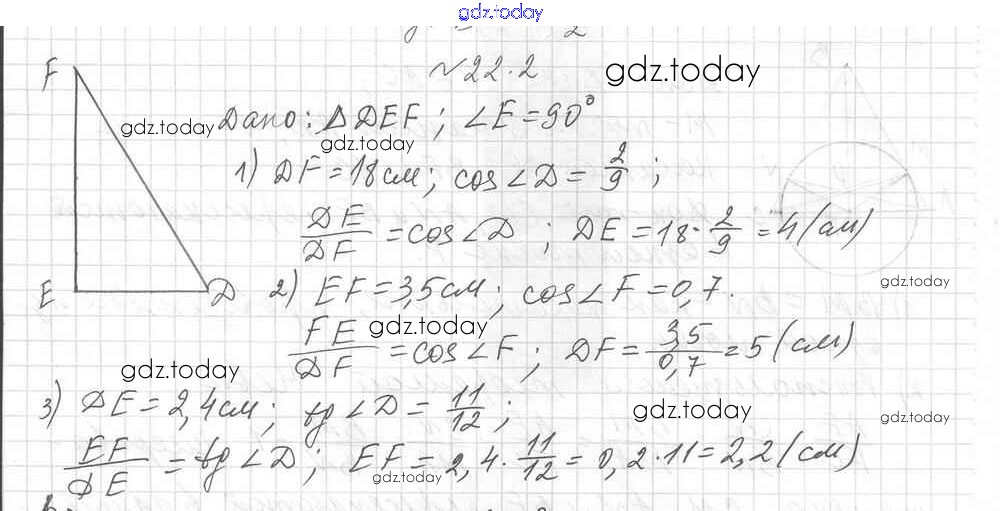 gdz.today
№22.2
gdz.today
F
Дано: ΔDEF; ∠E=90°
gdz.today
gdz.today
1) DF=18см; cos∠D=2/9;
DE/DF=cos∠D; DE=18·2/9=4(см)
gdz.today
E D
2) EF=3,5см; cos∠F=0,7.
gdz.today
FE/DF=cos∠F; DF=3,5/0,7=5(см)
gdz.today
3) DE=2,4см; tg∠D=11/12;
gdz.today
gdz.today
EF/DE=tg∠D; EF=2,4·11/12=0,2·11=2,2(см)
gdz.today